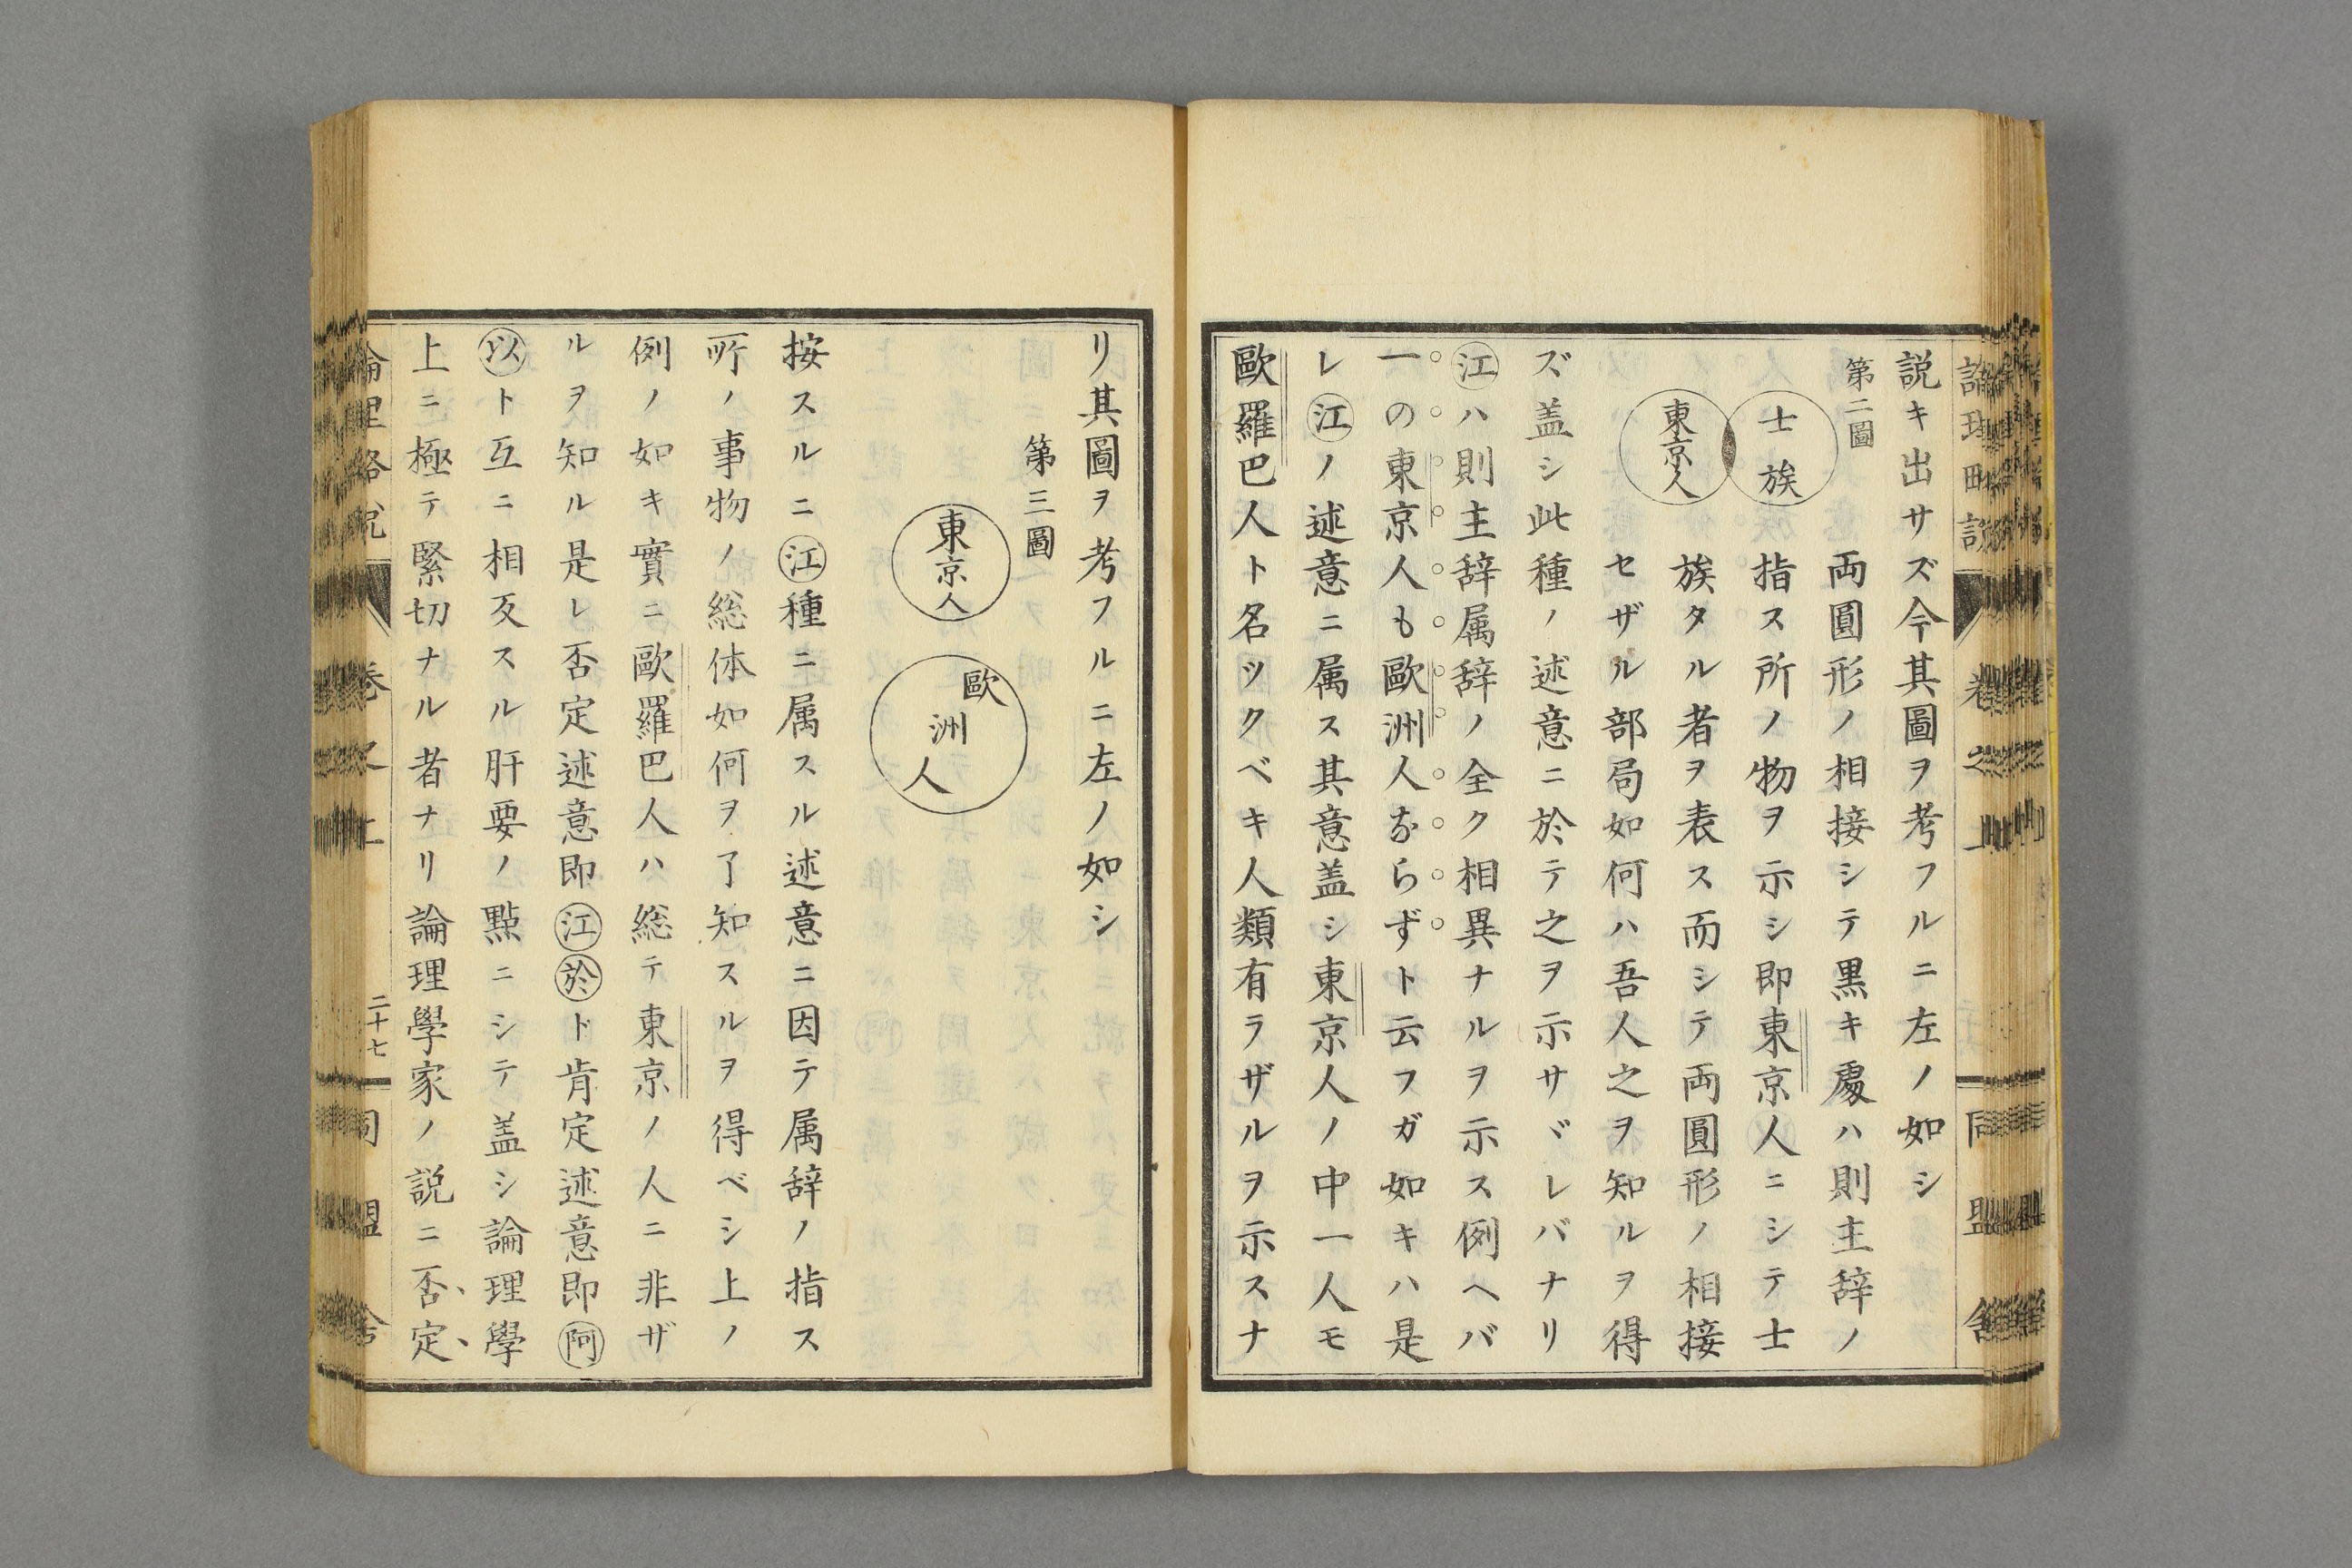 説キ出サズ今其圖ヲ考フルニ左ノ如シ
第二圖
士族
東京人
両圓形ノ相接シテ黒キ處ハ則主辞ノ
指ス所ノ物ヲ示シ即東京人ニシテ士
族タル者ヲ表ス而シテ両圓形ノ相接
セザル部局如何ハ吾人之ヲ知ルヲ得
ズ盖シ此種ノ述意ニ於テ之ヲ示サヾレバナリ
江ハ則主辞属辞ノ全ク相異ナルヲ示ス例ヘバ
一の東京人も歐洲人ならずト云フガ如キハ是
レ江ノ述意ニ属ス其意盖シ東京人ノ中一人モ
歐羅巴人ト名ツクベキ人類有ラザルヲ示スナ
リ其圖ヲ考フルニ左ノ如シ
第三圖
東京人
歐洲人
按スルニ江種ニ属スル述意ニ因テ属辞ノ指ス
所ノ事物ノ総体如何ヲ了知スルヲ得ベシ上ノ
例ノ如キ實ニ歐羅巴人ハ総テ東京ノ人ニ非ザ
ルヲ知ル是レ否定述意即江於ド肯定述意即阿
以ト互ニ相反スル肝要ノ點ニシテ盖シ論理學
上ニ極テ緊切ナル者ナリ論理學家ノ説ニ否定
二十七